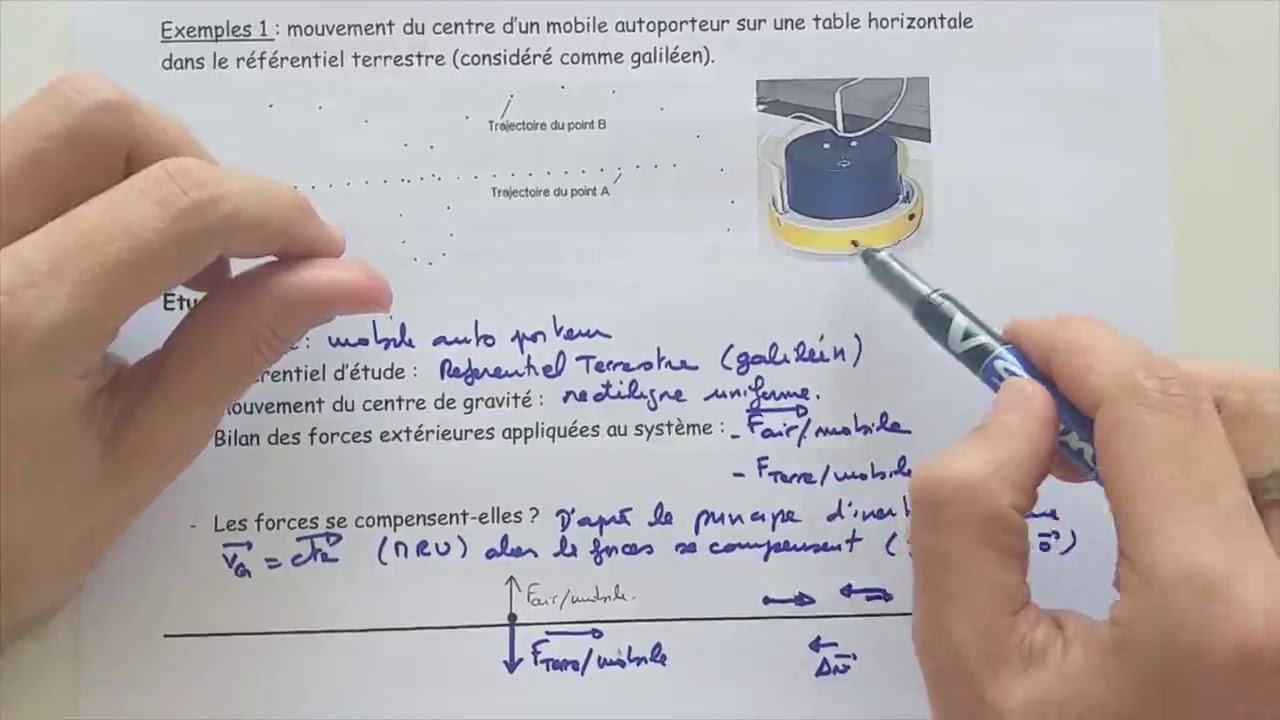 Exemples 1 : mouvement du centre d'un mobile autoporteur sur une table horizontale
dans le référentiel terrestre (considéré comme galiléen).
Trajectoire du point B
Trajectoire du point A
Etu
: mobile auto porteur
rentiel d'étude : Referentiel Terrestre (galiléen)
ouvement du centre de gravité : rectiligne uniforme.
Bilan des forces extérieures appliquées au système : - Fair/mobile
- FTerre/mobile
- Les forces se compensent-elles ? D'après le principe d'inert
vG = cte (MRU) alors les forces se compensent ( 0 )
Fair/mobile.
FTerre/mobile
Δv